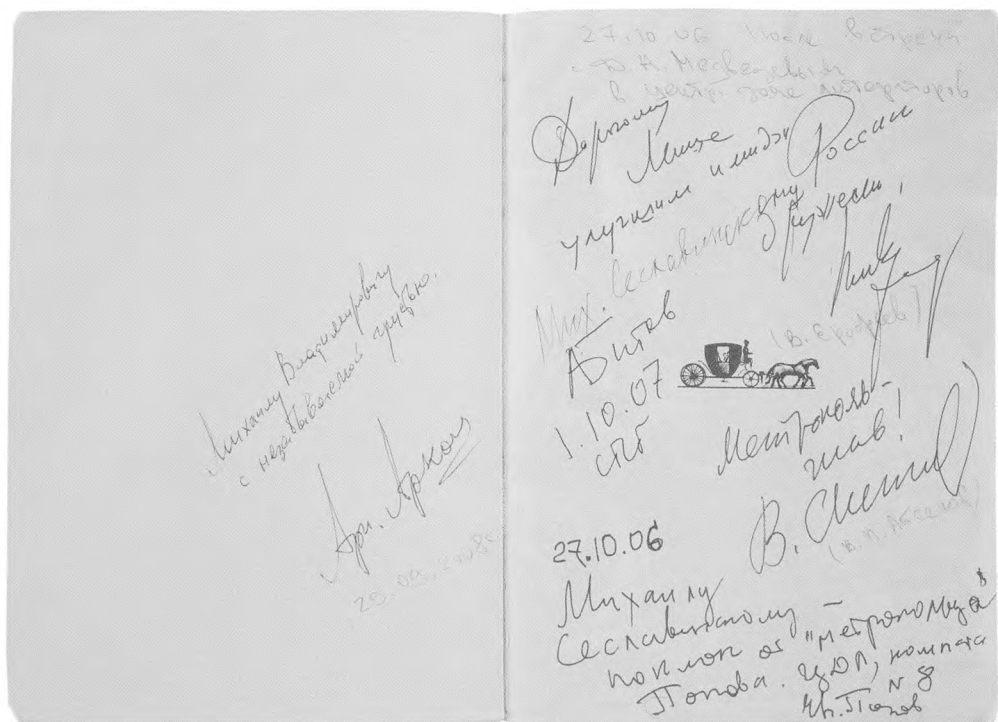 Михаилу Владимировичу
с незабываемой грустью.
Арк. Арканов
25.09.2008г
27.10.06 После встречи
с Д. А. Медведевым
в центр. доме литераторов
Дорогому
Мише
улучшим имидж России
Дружески,
(В. Ерофеев)
Мих. Сеславинскому
АБитов
1.10.07
СПб
Метрополь -
жив!
В. Аксенов
(В. П. Аксенов)
27.10.06
Михаилу
Сеславинскому –
поклон от "метропольца"
Попова. ЦДЛ, комната
№ 8
Евг. Попов